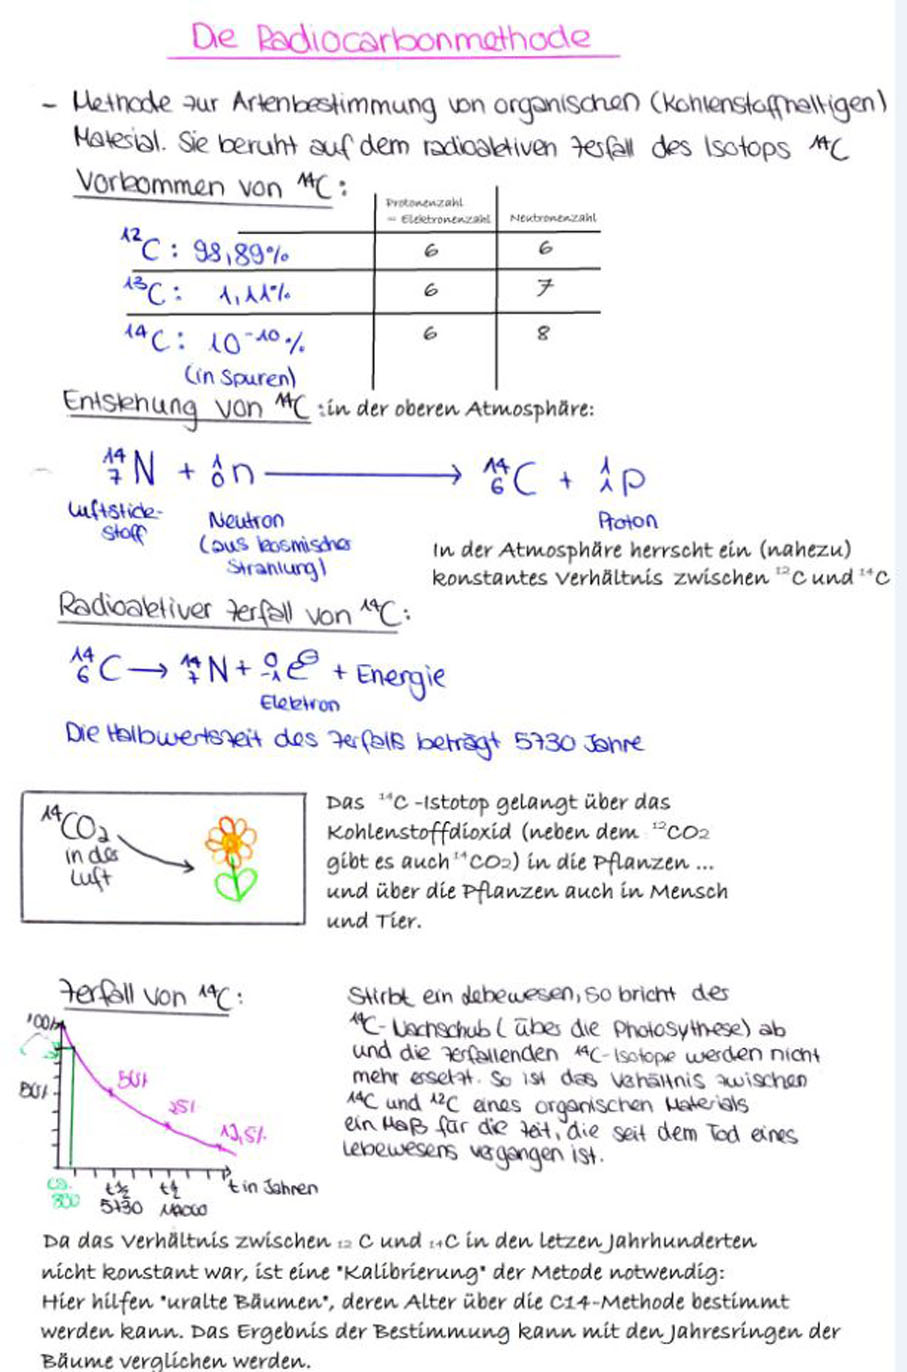 Die Radiocarbonmethode
- Methode zur Artenbestimmung von organischen (kohlenstoffhaltigen)
Material. Sie beruht auf dem radioaktiven Zerfall des Isotops ¹⁴C
Vorkommen von ¹⁴C:
Protonenzahl
= Elektronenzahl Neutronenzahl
¹²C: 98,89% 6 6
¹³C: 1,11% 6 7
¹⁴C: 10⁻¹⁰% 6 8
(in Spuren)
Entstehung von ¹⁴C: in der oberen Atmosphäre:
¹⁴₇N + ¹₀n → ¹⁴₆C + ¹₁p
Luftstick- Neutron Proton
stoff (aus kosmischer
Strahlung)
In der Atmosphäre herrscht ein (nahezu)
konstantes Verhältnis zwischen ¹²C und ¹⁴C
Radioaktiver Zerfall von ¹⁴C:
¹⁴₆C → ¹⁴₇N + ⁰₋₁e⊖ + Energie
Elektron
Die Halbwertszeit des Zerfalls beträgt 5730 Jahre
¹⁴CO₂
in der
Luft
Das ¹⁴C -Istotop gelangt über das
Kohlenstoffdioxid (neben dem ¹²CO2
gibt es auch ¹⁴CO2) in die Pflanzen ...
und über die Pflanzen auch in Mensch
und Tier.
Zerfall von ¹⁴C:
100%
50%
50%
25%
12,5%
t in Jahren
ca.
800
t½
5730
Stirbt ein Lebewesen, so bricht der
¹⁴C-Nachschub (über die Photosythese) ab
und die zerfallenden ¹⁴C-Isotope werden nicht
mehr ersetzt. So ist das Verhältnis zwischen
¹⁴C und ¹²C eines organischen Materials
ein Maß für die Zeit, die seit dem Tod eines
Lebewesens vergangen ist.
Da das Verhältnis zwischen ₁₂C und ₁₄C in den letzen Jahrhunderten
nicht konstant war, ist eine "Kalibrierung" der Metode notwendig:
Hier hilfen "uralte Bäumen", deren Alter über die C14-Methode bestimmt
werden kann. Das Ergebnis der Bestimmung kann mit den Jahresringen der
Bäume verglichen werden.